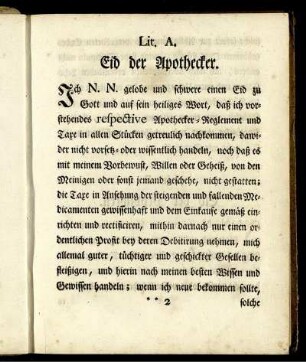 Lit. A.
Eid der Apothecker.
Ich N. N. gelobe und schwere einen Eid zu
Gott und auf sein heiliges Wort, daß ich vor-
stehendes respective Apothecker-Reglement und
Taxe in allen Stücken getreulich nachkommen, dawi-
der nicht vorsetz- oder wissentlich handeln, noch daß es
mit meinem Vorbewust, Willen oder Geheiß, von den
Meinigen oder sonst jemand geschehe, nicht gestatten;
die Taxe in Ansehung der steigenden und fallenden Me-
dicamenten gewissenhaft und dem Einkaufe gemäß ein-
richten und rectificiren, mithin darnach nur einen or-
dentlichen Profit bey deren Debitirung nehmen, mich
allemal guter, tüchtiger und geschickter Gesellen be-
fleißigen, und hierin nach meinen besten Wissen und
Gewissen handeln; wenn ich neue bekommen sollte,
* * 2 solche